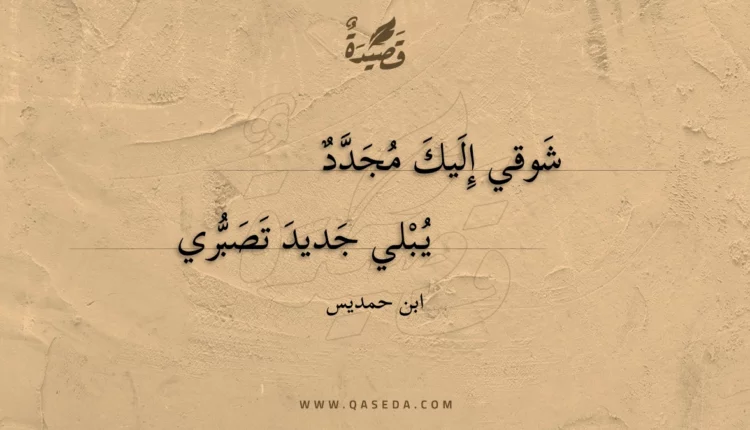 قَصِيْدَةٌ
شَوقي إِلَيكَ مُجَدَّدٌ
يُبْلي جَديدَ تَصَبُّري
ابن حمديس
WWW.QASEDA.COM